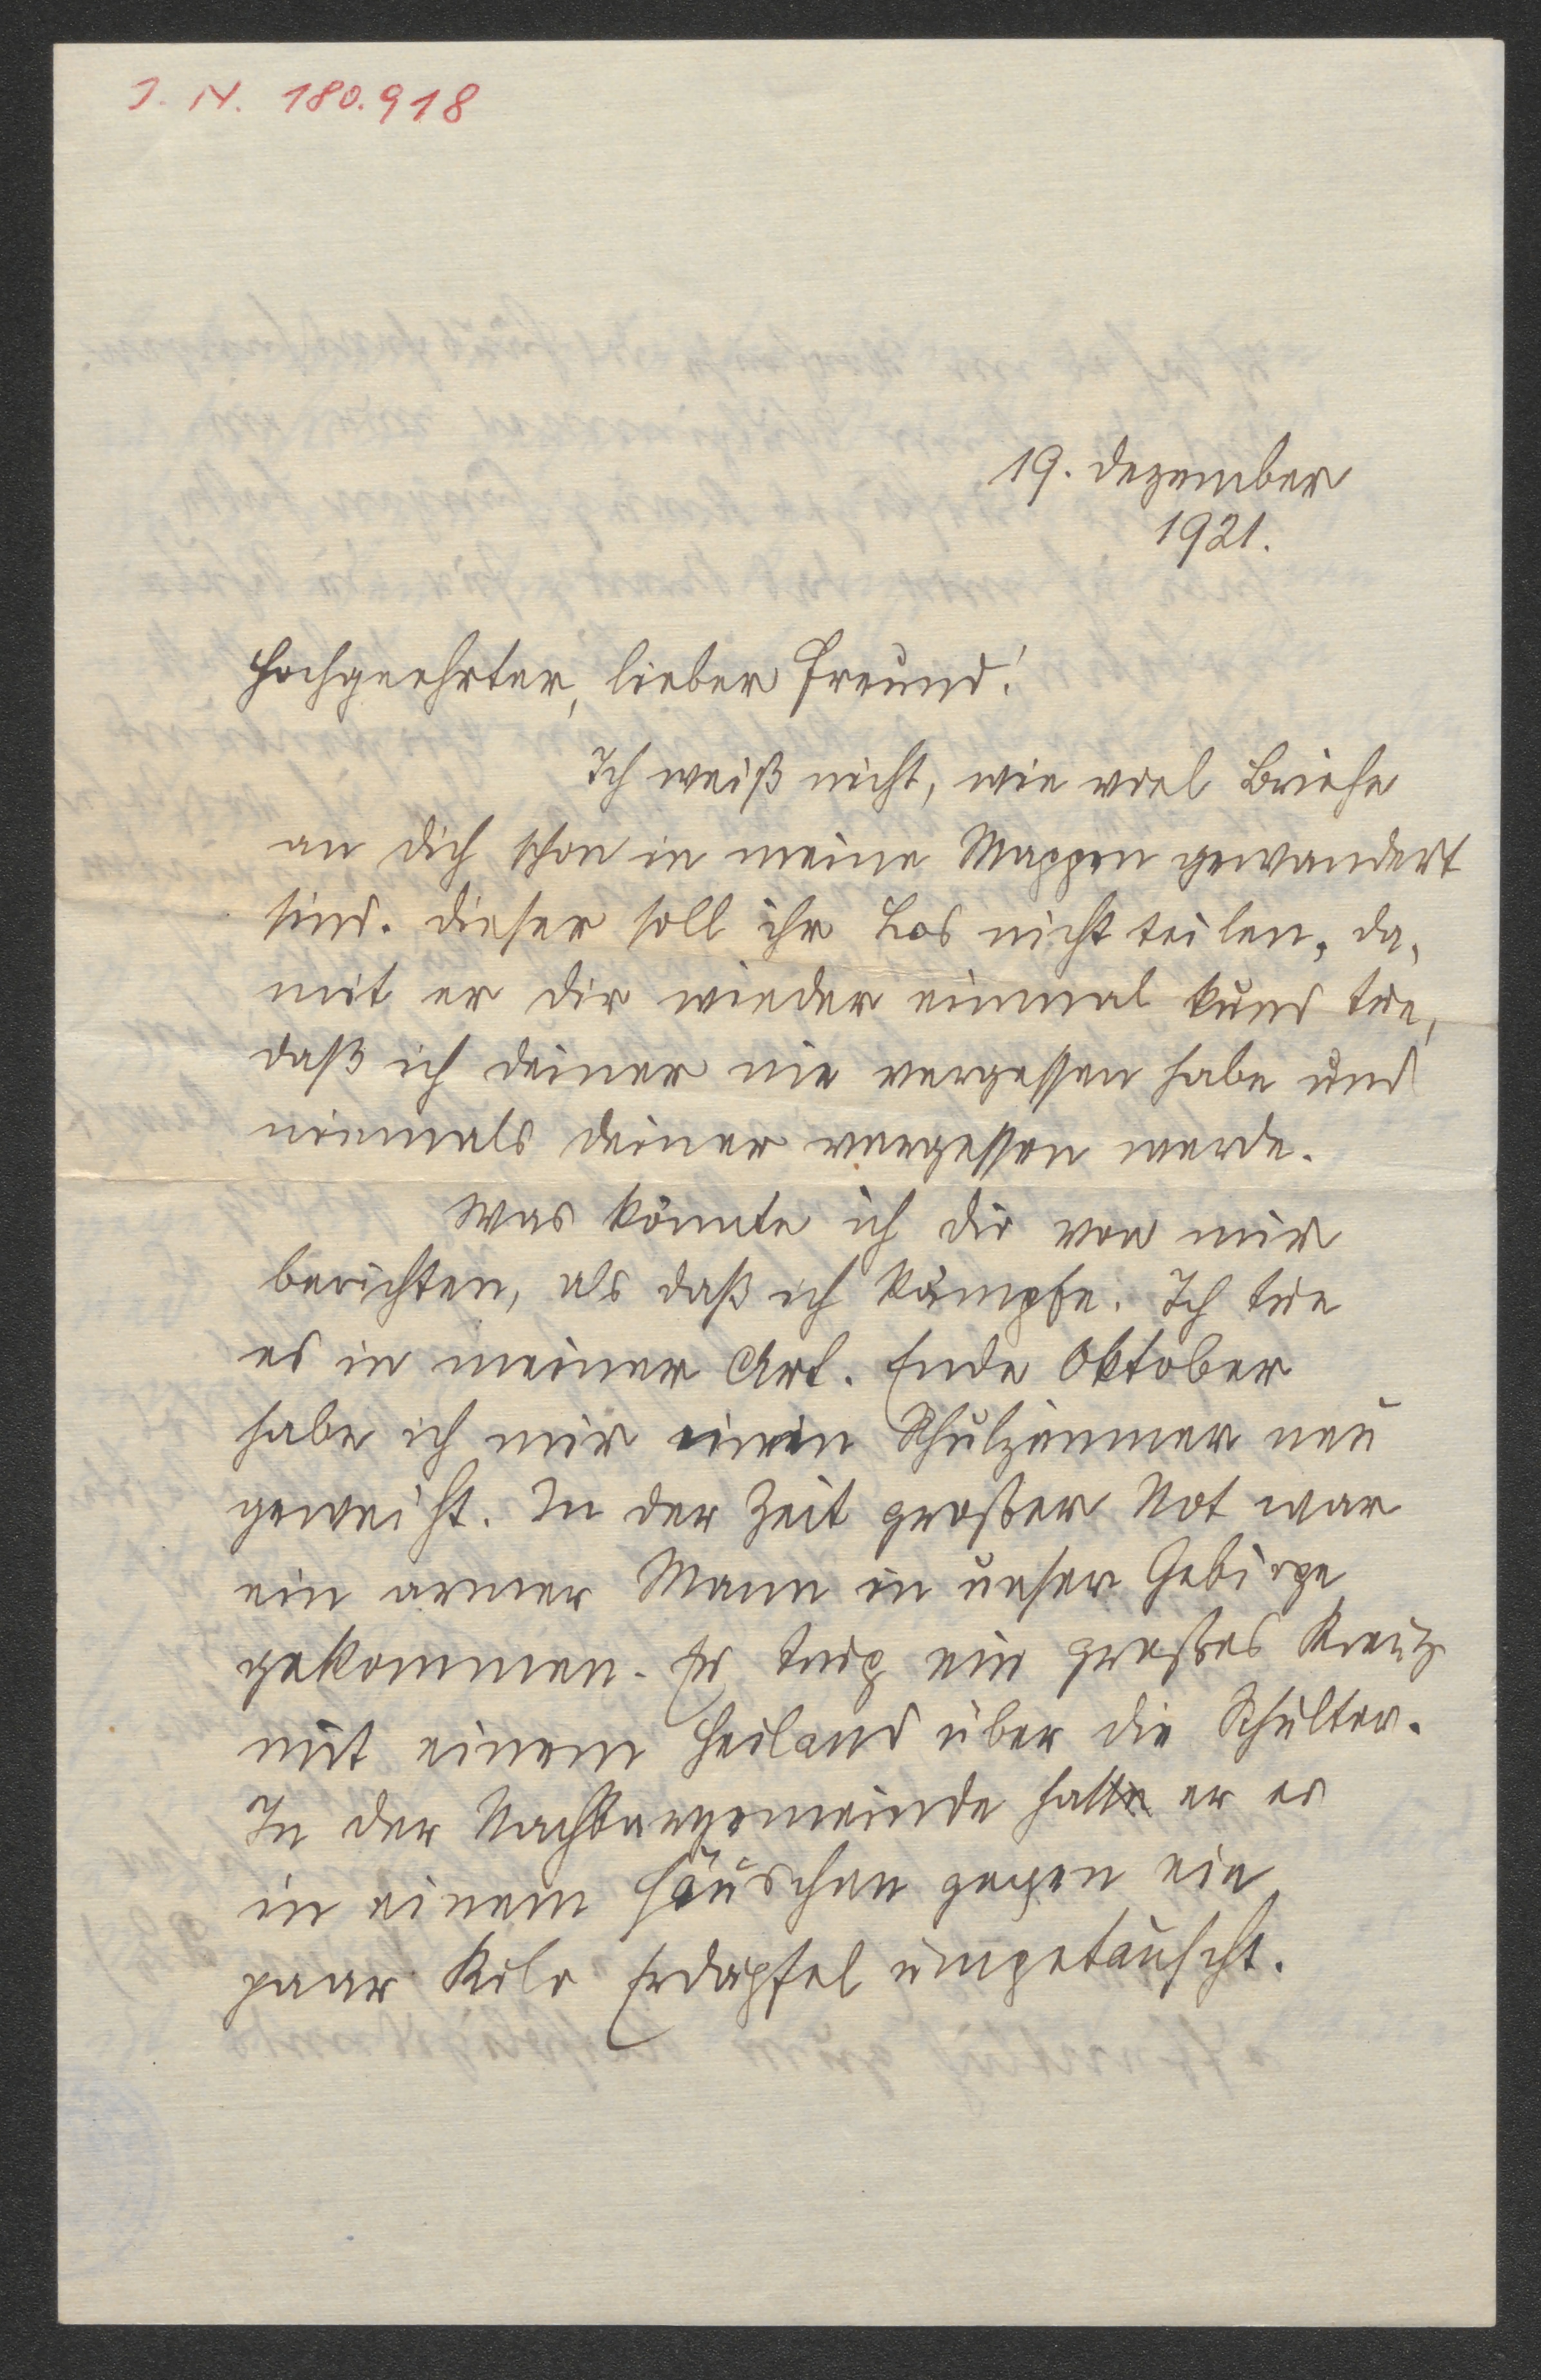 I. N. 180.918
19. Dezember
1921.
Hochgeehrter, lieber Freund!
Ich weiß nicht, wie viel Briefe
an Dich schon in meine Mappen gewandert
sind. Dieser soll ihr Los nicht teilen, da-
mit er Dir wieder einmal kund tue,
daß ich Deiner nie vergessen habe und
niemals Deiner vergessen werde.
Was könnte ich Dir von mir
berichten, als daß ich kämpfe. Ich tue
es in meiner Art. Ende Oktober
habe ich mir mein Schulzimmer neu
geweiht. In der Zeit großer Not war
ein armer Mann in unser Gebirge
gekommen. Er trug ein großes Kreuz
mit einem Heiland über die Schulter.
In der Nachbargemeinde hatte er es
in einem Häuschen gegen ein
paar Kilo Erdäpfel umgetauscht.